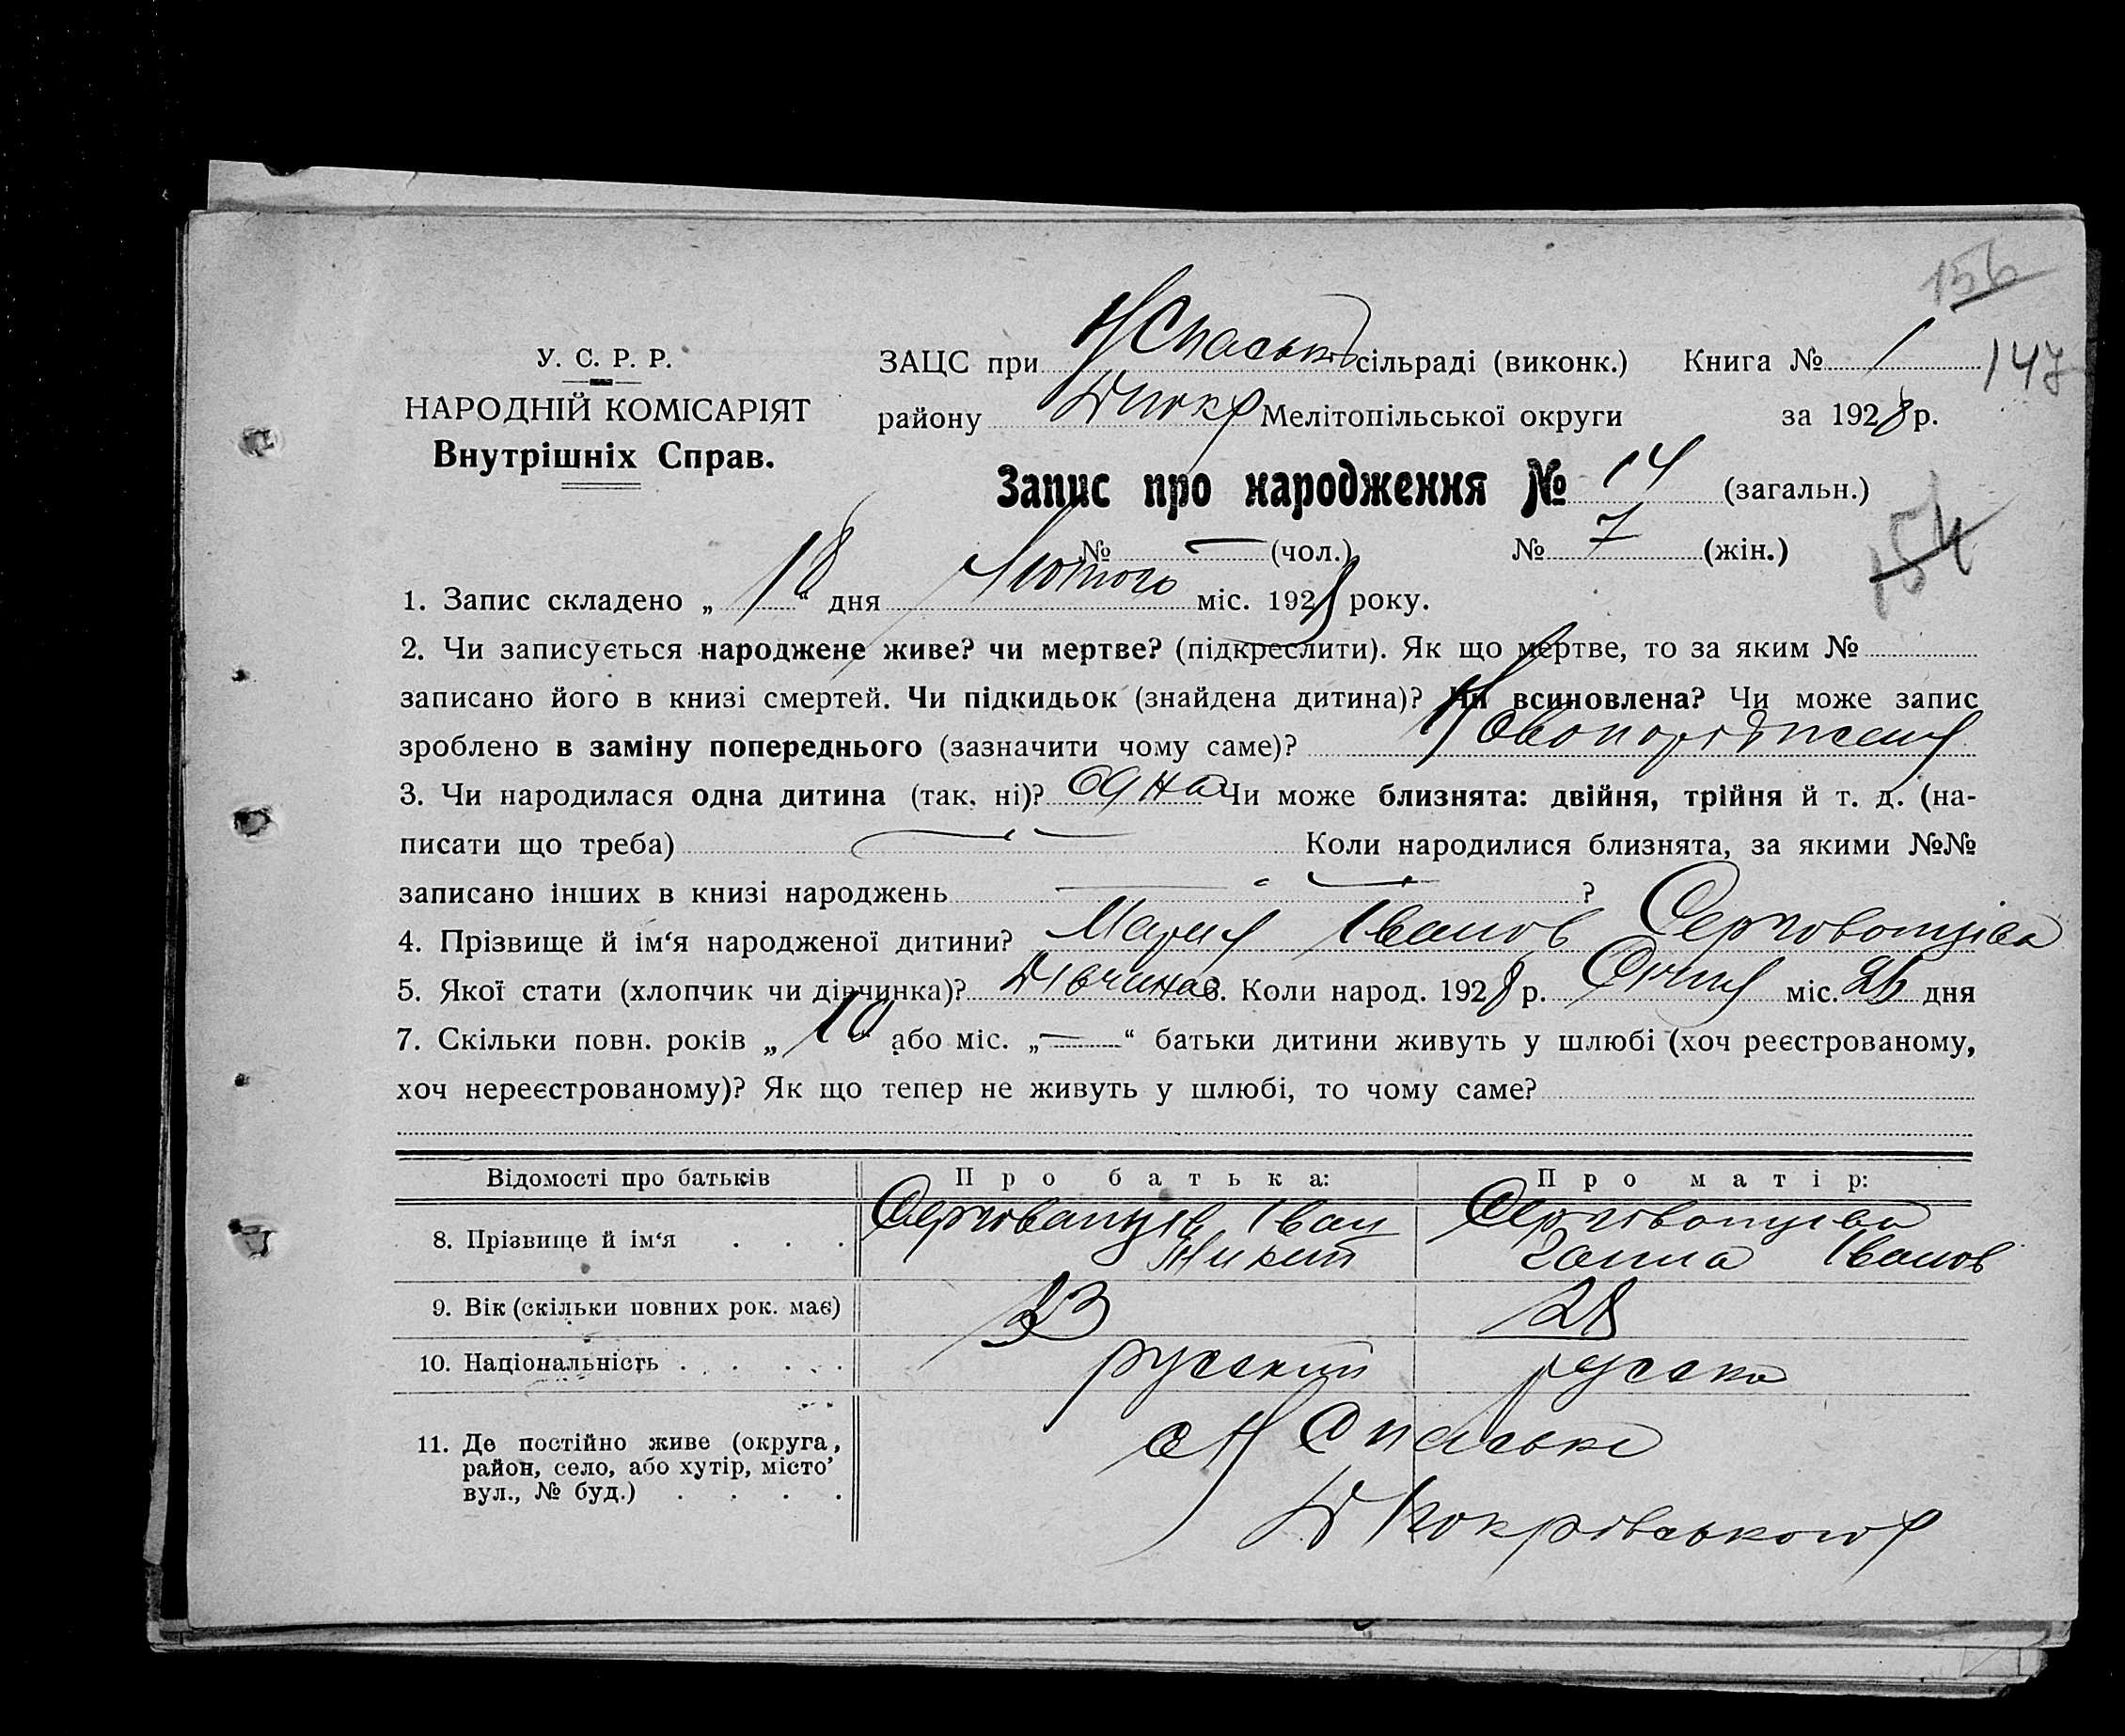 156
У. С. Р. Р.
НАРОДНІЙ КОМІСАРІЯТ
Внутрішніх Справ.
ЗАЦС при НСпаській сільраді (виконк.) Книга № 1
147
району Мелітопільської округи за 1928 р.
Запис про народження № 14 (загальн.)
№ — (чол.) № 7 (жін.)
154
1. Запис складено „18“ дня Лютого міс. 1928 року.
2. Чи записується народжене живе? чи мертве? (підкреслити). Як що мертве, то за яким №
записано його в книзі смертей. Чи підкидьок (знайдена дитина)? Чи всиновлена? Чи може запис
зроблено в заміну попереднього (зазначити чому саме)?
3. Чи народилася одна дитина (так, ні)? одна Чи може близнята: двійня, трійня й т. д. (на-
писати що треба) — Коли народилися близнята, за якими №№
записано інших в книзі народжень — ?
4. Прізвище й ім‘я народженої дитини? Мария Іванов
5. Якої стати (хлопчик чи дівчинка)? Дівчинка 6. Коли народ. 1928 р. Січня міс. 26 дня
7. Скільки повн. років „10“ або міс. „—“ батьки дитини живуть у шлюбі (хоч реєстрованому,
хоч нереєстрованому)? Як що тепер не живуть у шлюбі, то чому саме?
Відомості про батьків Про батька: Про матір:
8. Прізвище й ім‘я . . . Іван Микит Ганна Іванов
9. Вік (скільки повних рок. має) 33 28
10. Національність . . . . русский руска
11. Де постійно живе (округа, район, село, або хутір, місто’ вул., № буд.) . . . . с Н Спаське
Д Покровського р